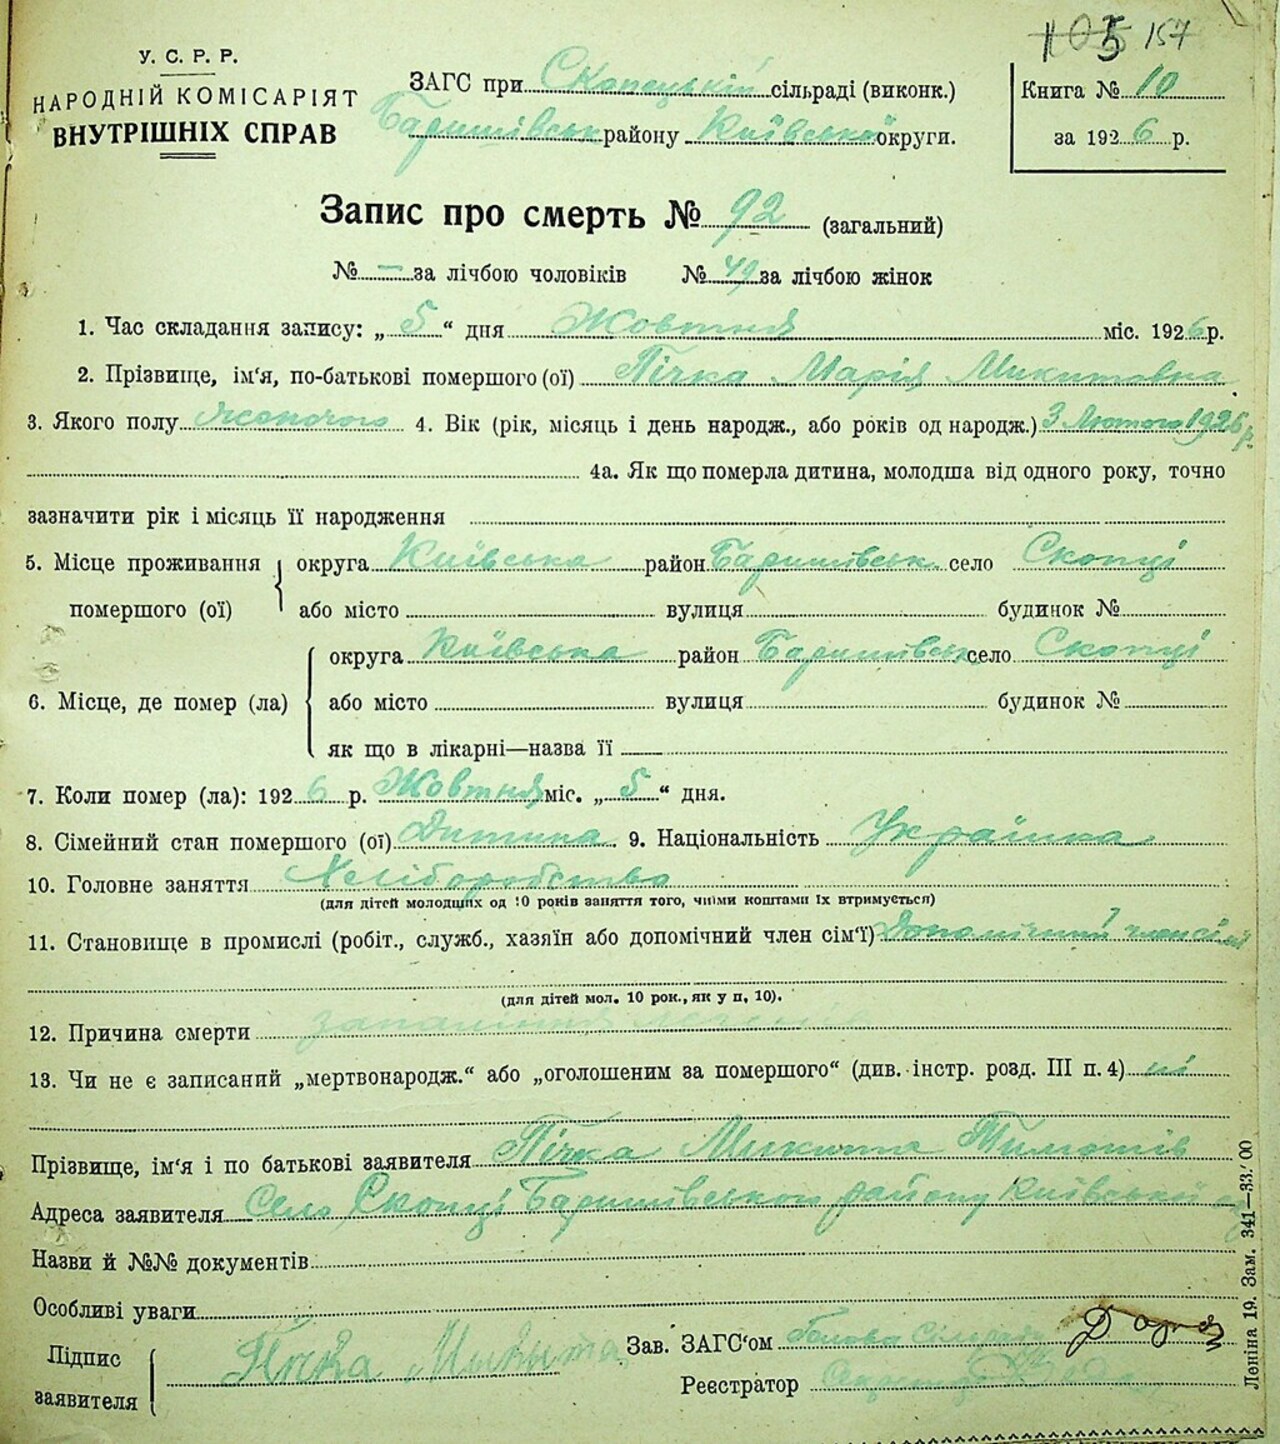 105 157
У. С. Р. Р.
НАРОДНІЙ КОМІСАРІЯТ
ВНУТРІШНІХ СПРАВ
ЗАГС при Скопецькій сільраді (виконк.)
Баришівськ району Київської округи.
Книга № 10
за 1926 р.
Запис про смерть № 92 (загальний)
№ — за лічбою чоловіків № 49 за лічбою жінок
1. Час складання запису: „5“ дня Жовтня міс. 1926 р.
2. Прізвище, ім'я, по-батькові помершого (ої) Пічка Марія Микитовна
3. Якого полу жоночого 4. Вік (рік, місяць і день народж., або років од народж.) 3 Лютого 1926 р.
4а. Як що померла дитина, молодша від одного року, точно
зазначити рік і місяць її народження
5. Місце проживання помершого (ої) округа Київська район Баришівськ. село Скопці
або місто вулиця будинок №
6. Місце, де помер (ла) округа Київська район Баришівськ село Скопці
або місто вулиця будинок №
як що в лікарні—назва її
7. Коли помер (ла): 1926 р. Жовтня міс. „5“ дня.
8. Сімейний стан помершого (ої) Дитина. 9. Національність Українка
10. Головне заняття Хліборобство
(для дітей молодших од 10 років заняття того, чиїми коштами їх втримується)
11. Становище в промислі (робіт., служб., хазяїн або допомічний член сім'ї) Допомічний член сімї
(для дітей мол. 10 рок., як у п, 10).
12. Причина смерти запаління легенів
13. Чи не є записаний „мертвонародж.“ або „оголошеним за помершого“ (див. інстр. розд. III п. 4) ні
Прізвище, ім'я і по батькові заявителя Пічка Микита Тимотів
Адреса заявителя Село Скопці Баришівського району Київської
Назви й №№ документів
Особливі уваги
Підпис заявителя Пічка Микита
Зав. ЗАГС'ом Голова Сільради
Реєстратор Секретар
Леніна 19. Зам. 341—33.'00